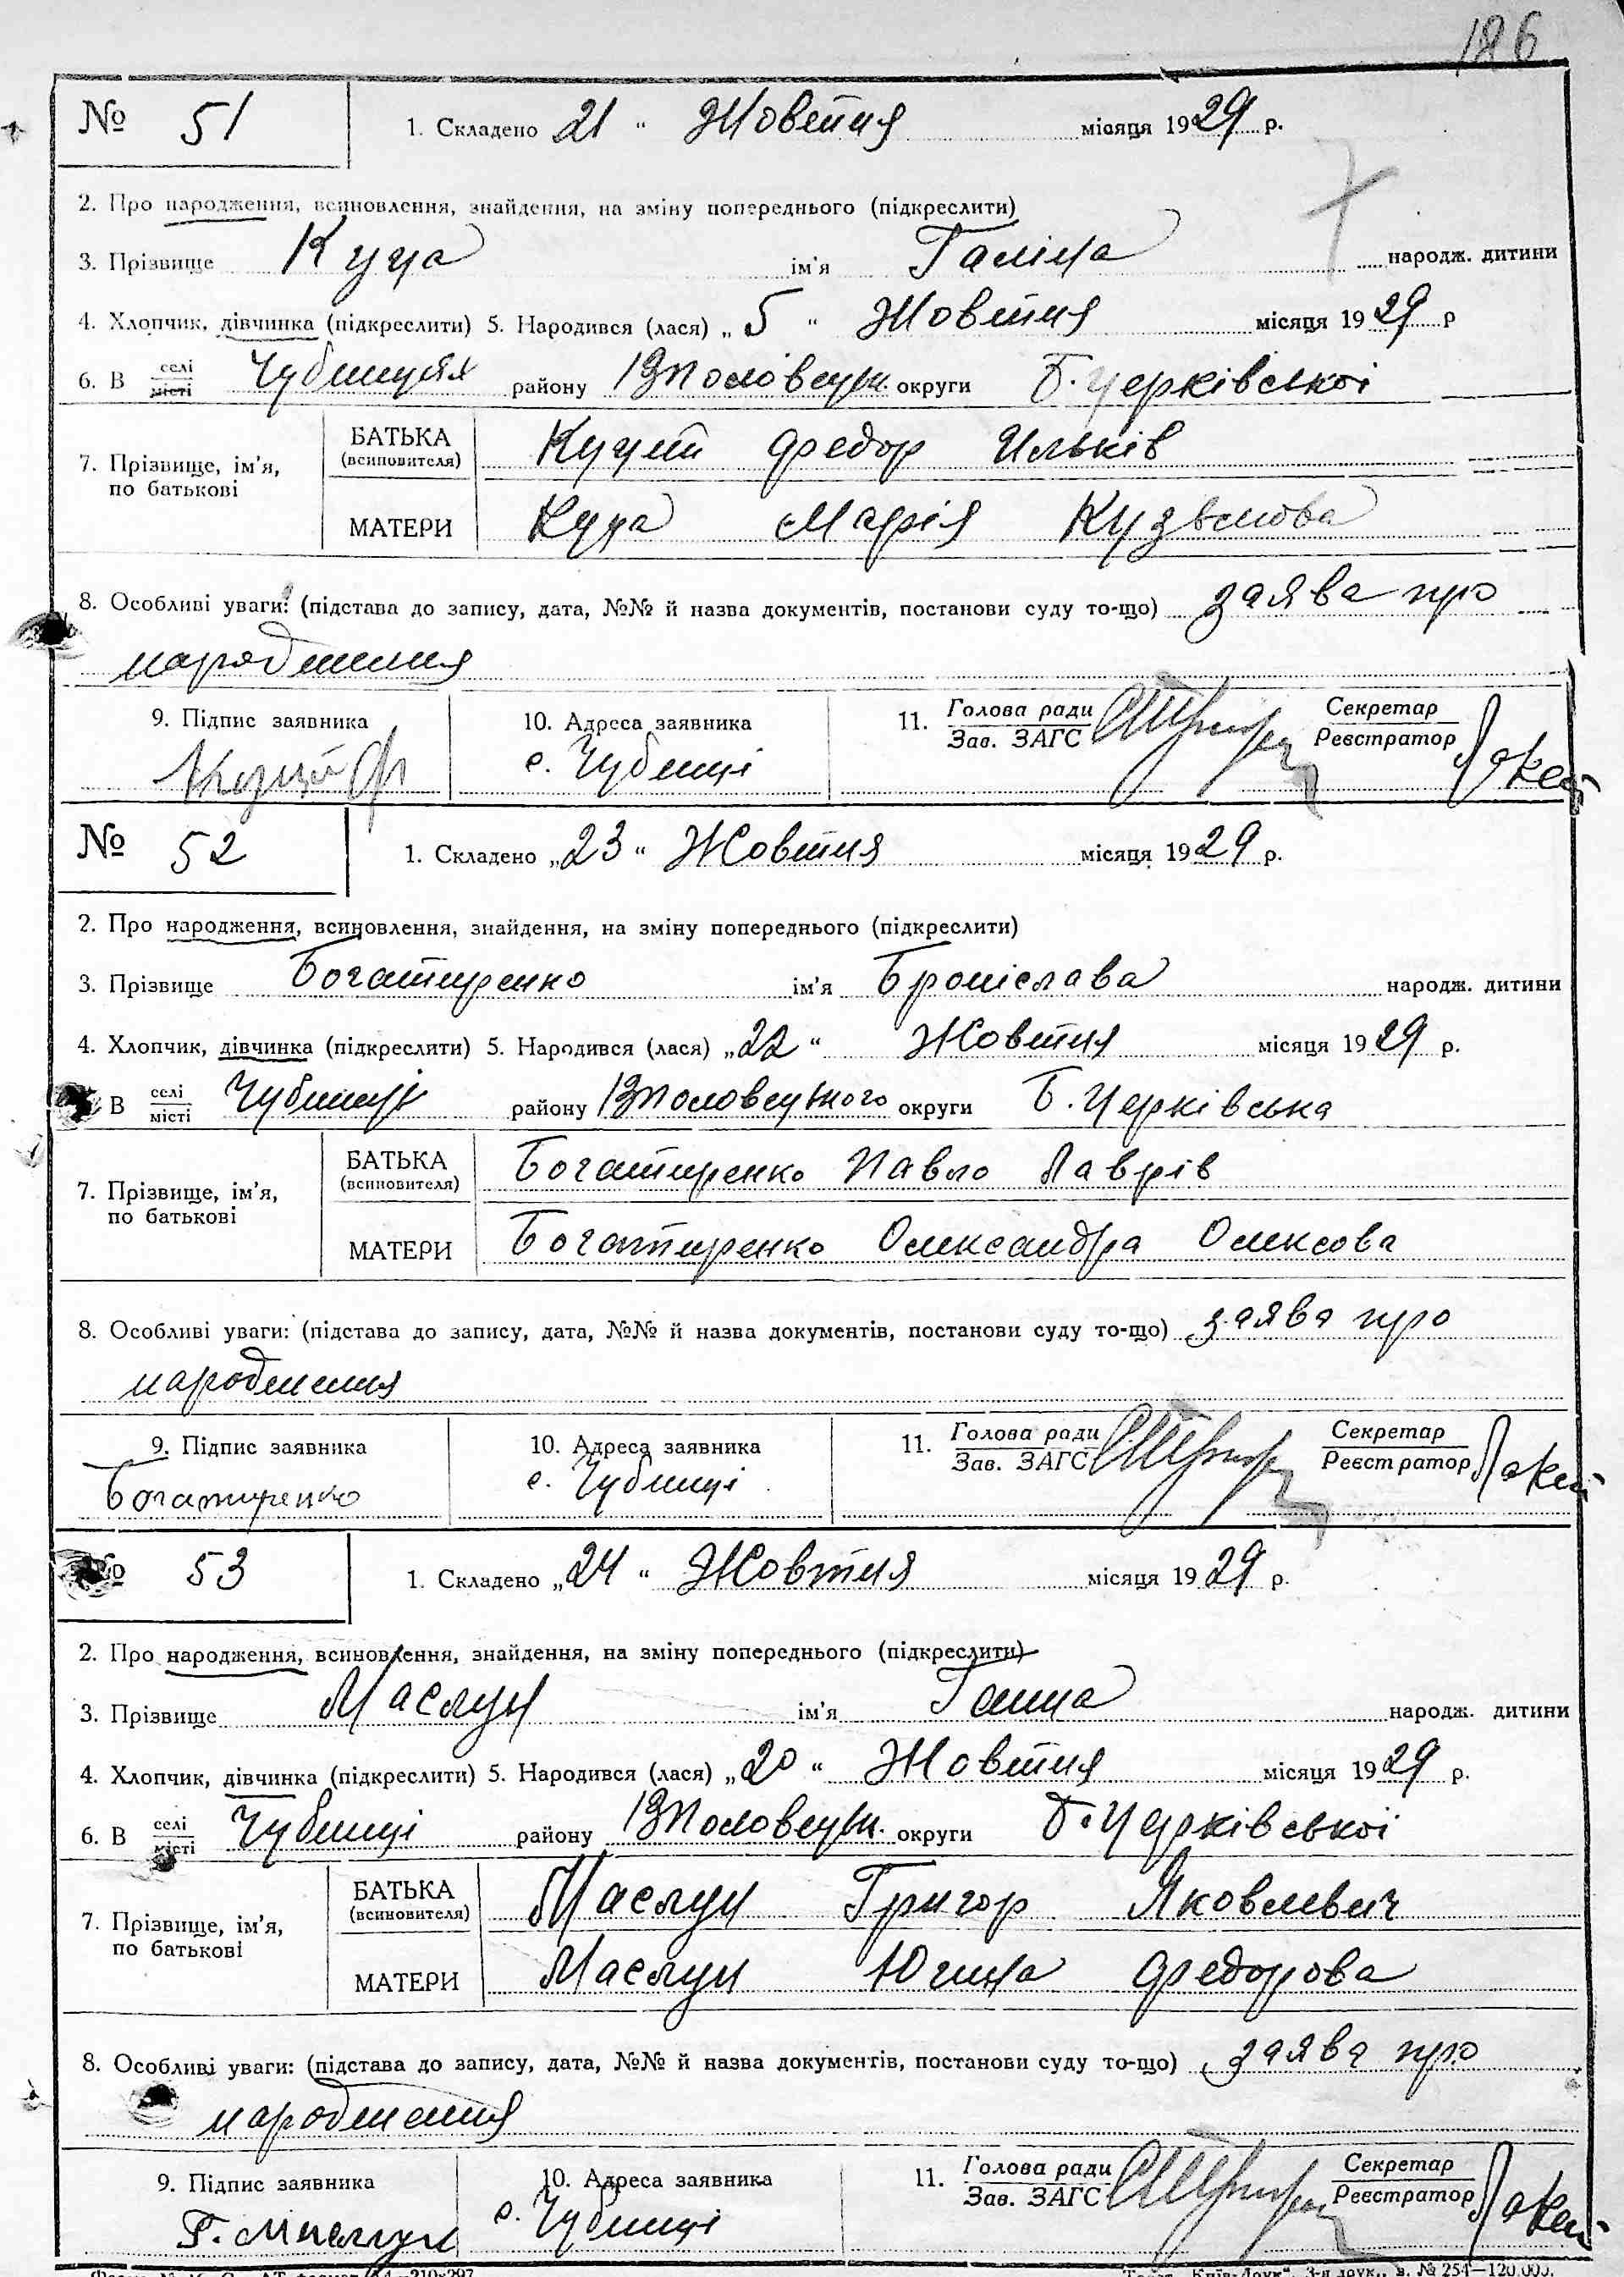 186
№ 51 1. Складено 21 " Жовтня місяця 1929 р.
2. Про народження, всиновлення, знайдення, на зміну попереднього (підкреслити)
3. Прізвище Куца ім'я Галіна народж. дитини
4. Хлопчик, дівчинка (підкреслити) 5. Народився (лася) „ 5 “ Жовтня місяця 1929 р
6. В селі місті Чубинцях району округи Б. Церківської
7. Прізвище, ім'я, по батькові
БАТЬКА (всиновителя) Куций Федор Ильків
МАТЕРИ Куца Марія Кузьмова
8. Особливі уваги: (підстава до запису, дата, №№ й назва документів, постанови суду то-що) заява про
народження
9. Підпис заявника 10. Адреса заявника 11. Голова ради Зав. ЗАГС Секретар Реєстратор
Куций Ф с. Чубинці
№ 52 1. Складено „23“ Жовтня місяця 1929 р.
2. Про народження, всиновлення, знайдення, на зміну попереднього (підкреслити)
3. Прізвище Богатиренко ім'я Броніслава народж. дитини
4. Хлопчик, дівчинка (підкреслити) 5. Народився (лася) „22“ Жовтня місяця 1929 р.
В селі місті Чубинці району округи Б. Церківська
7. Прізвище, ім'я, по батькові
БАТЬКА (всиновителя) Богатиренко Павло Лаврів
МАТЕРИ Богатиренко Олександра Олексова
8. Особливі уваги: (підстава до запису, дата, №№ й назва документів, постанови суду то-що) заява про
народження
9. Підпис заявника 10. Адреса заявника 11. Голова ради Зав. ЗАГС Секретар Реєстратор
Богатиренко с. Чубинці
№ 53 1. Складено „24“ Жовтня місяця 1929 р.
2. Про народження, всиновлення, знайдення, на зміну попереднього (підкреслити)
3. Прізвище Маслун ім'я Ганна народж. дитини
4. Хлопчик, дівчинка (підкреслити) 5. Народився (лася) „20“ Жовтня місяця 1929 р.
6. В селі місті Чубинці району округи Б. Церківської
7. Прізвище, ім'я, по батькові
БАТЬКА (всиновителя) Маслун Григор Яковлевич
МАТЕРИ Маслун Югина Федорова
8. Особливі уваги: (підстава до запису, дата, №№ й назва документів, постанови суду то-що) заява про
народження
9. Підпис заявника 10. Адреса заявника 11. Голова ради Зав. ЗАГС Секретар Реєстратор
Г. Маслун с. Чубинці